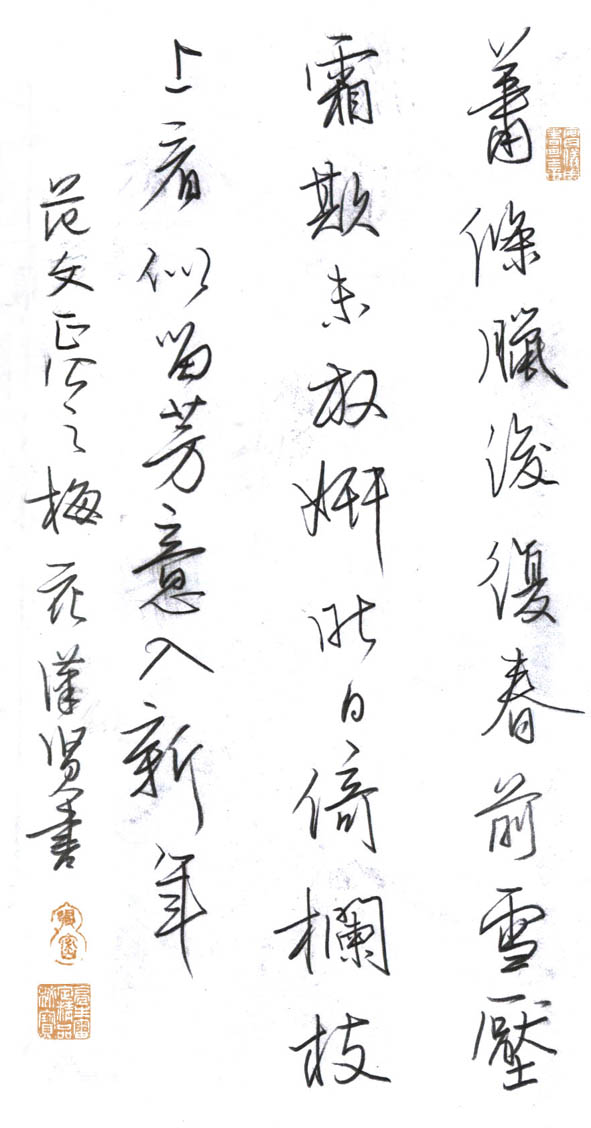 蕭條臘後復春前雪壓
霜欺未放妍昨日倚欄枝
上看似留芳意入新年
范文正公之梅花漢贤書